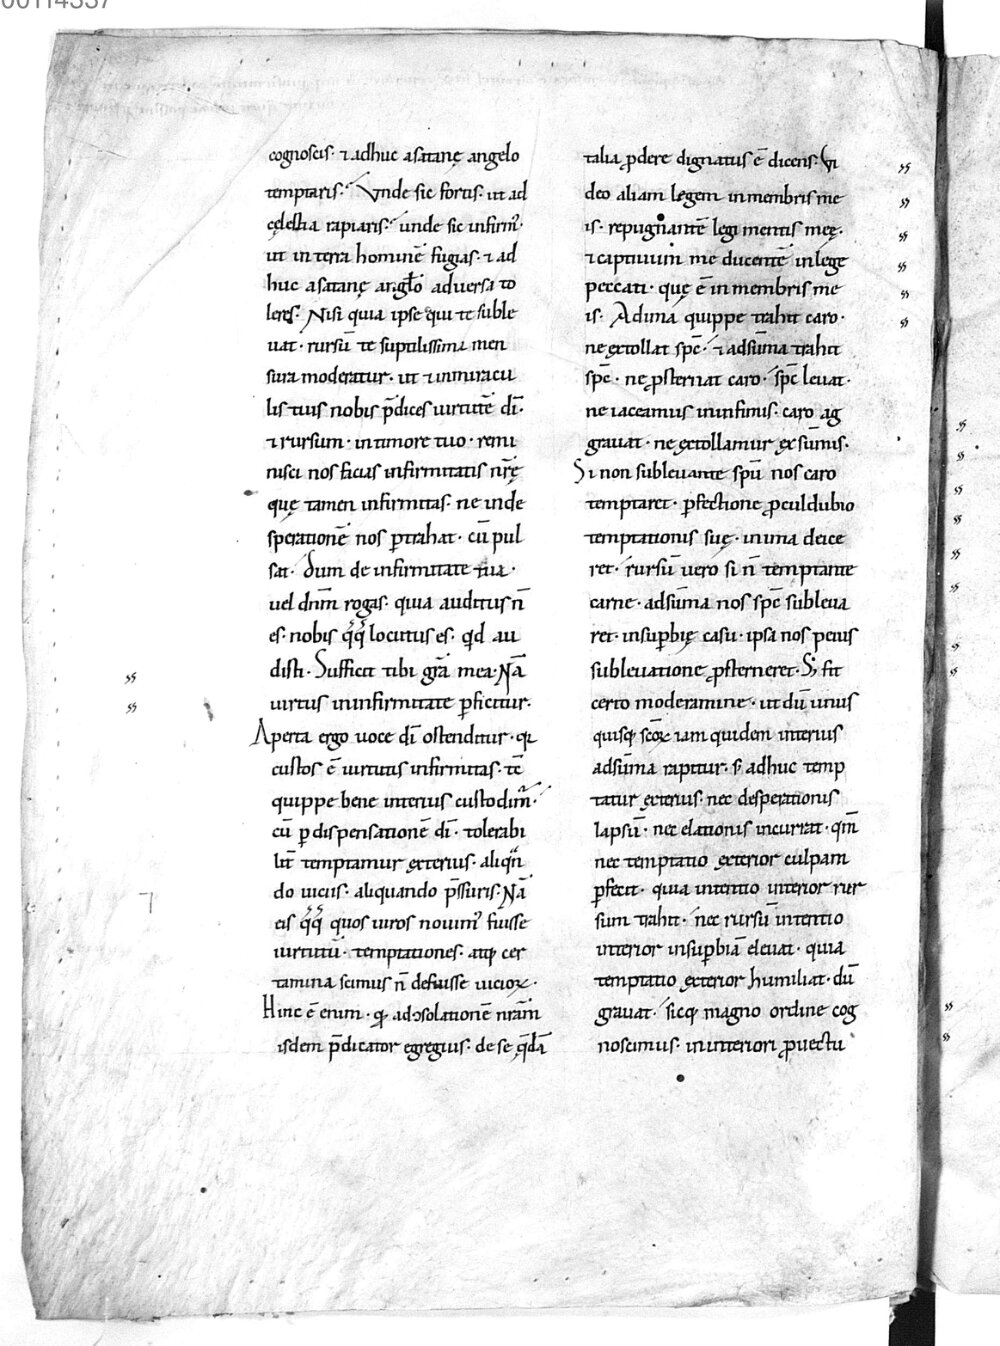 00114337
cognoscis· ⁊ adhuc asatanę angelo
temptaris·́ Vnde sic fortis· ut ad
cęlestia rapiaris·́ unde sic infirmꝰ·
ut in terra hominē fugias· ⁊ ad
huc asatanę angło aduersa to
leres· Nisi quia ipse qui te suble
uat· rursū te suptilissima men
sura moderatur· ut ⁊ inmiracu
lis tuis nobis p̄dices uirtutē dī·
⁊ rursum· intimore tuo· remi
nisci nos facias infirmitatis nr̄ę
quę tamen infirmitas· ne inde
sperationē nos ꝑtrahat· cū pul
sat· dum de infirmitate tua·
uel dnm̄ rogas· quia auditus n̄
es· nobis qͣqͣ locutus es· qd au
disti· Sufficit tibi gr̄a mea· Nā
uirtus ininfirmitate ꝑficitur·
Aperta ergo uoce dī ostenditur· qꝛ
custos ē uirtutis infirmitas· tē
quippe bene interius custodimꝰ·
cū ꝑ dispensationē dī· tolerabi
lit̄ temptamur exterius· aliqn̄
do uiciis· aliquando p̄ssuris· Nā
eis qͣqͣ quos uiros nouimꝰ fuisse
uirtutū· temptationes· atꝙ cer
tamina scimus n̄ defuisse uicioꝝ·
Hinc ē enim· qꝫ ad ↄsolationē nram̄
isdem p̄dicator egregius· de se qͣdā
talia ꝓdere dignatus ē dicens· Vi
deo aliam legem inmembris me
is· repugnantē legi mentis meę·
⁊ captiuum me ducentē inlege
peccati· quę ē inmembris me
is· Adima quippe trahit caro·
ne extollat spc̄· ⁊ adsūma trahit
spc̄· ne ꝓsternat caro· spc̄ leuat·
ne iaceamus ininfimis· caro ag
grauat· ne extollamur ex sūmis·
Si non subleuante spū nos caro
temptaret· ꝑfectione ꝓculdubio
temptationis suę· inima deice
ret· rursū uero si n̄ temptante
carne· adsūma nos spc̄ subleua
ret· insuꝑbię casu· ipsa nos peius
subleuatione ꝓsterneret· S; fit
certo moderamine· ut dū unus
quisqꝫ scōꝝ iam quidem interius
adsūma rapitur· s; adhuc temp
tatur exterius· nec desperationis
lapsū· nec elationis incurrat· qm̄
nec temptatio exterior culpam
ꝑfecit· quia intentio interior rur
sum trahit· nec rursū intentio
interior insuꝑbiā eleuat· quia
temptatio exterior humiliat· dū
grauat· sicqꝫ magno ordine cog
noscimus· ininteriori ꝓuectu